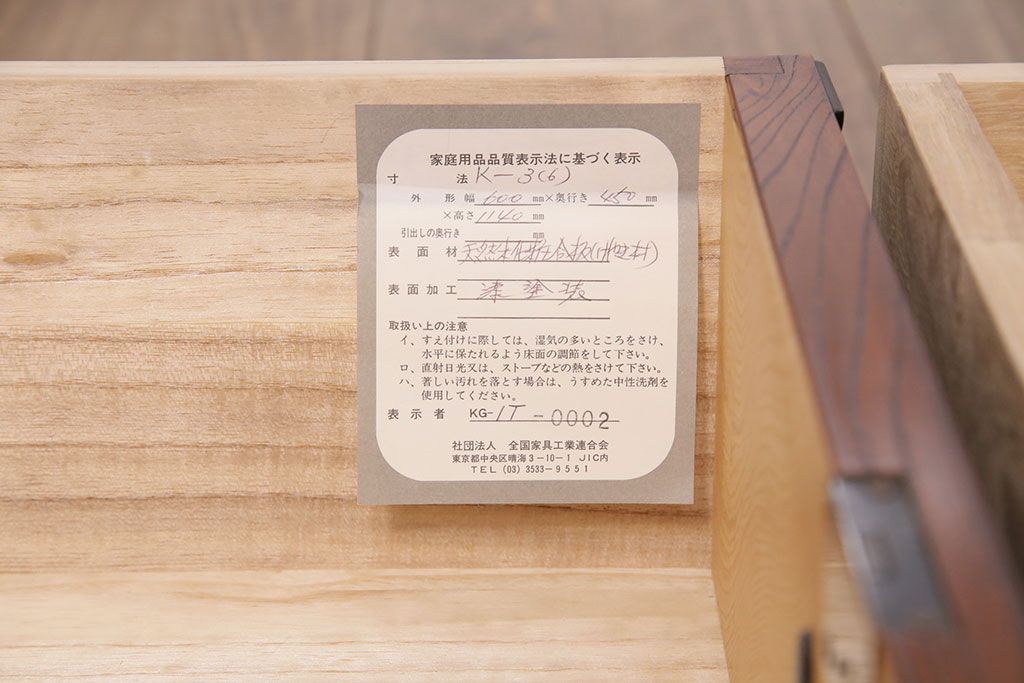 家庭用品品質表示法に基づく表示
寸法 K-3(6)
外形幅 600 mm×奥行き 450 mm
×高さ 1140 mm
引出しの奥行き mm
表面材 天然木化粧合板
表面加工 漆塗装
取扱い上の注意
イ、すえ付けに際しては、湿気の多いところをさけ、
水平に保たれるよう床面の調節をして下さい。
ロ、直射日光又は、ストーブなどの熱をさけて下さい。
ハ、著しい汚れを落とす場合は、うすめた中性洗剤を
使用してください。
表示者 KG-IT-0002
社団法人 全国家具工業連合会
東京都中央区晴海3-10-1 JIC内
TEL (03) 3533-9551